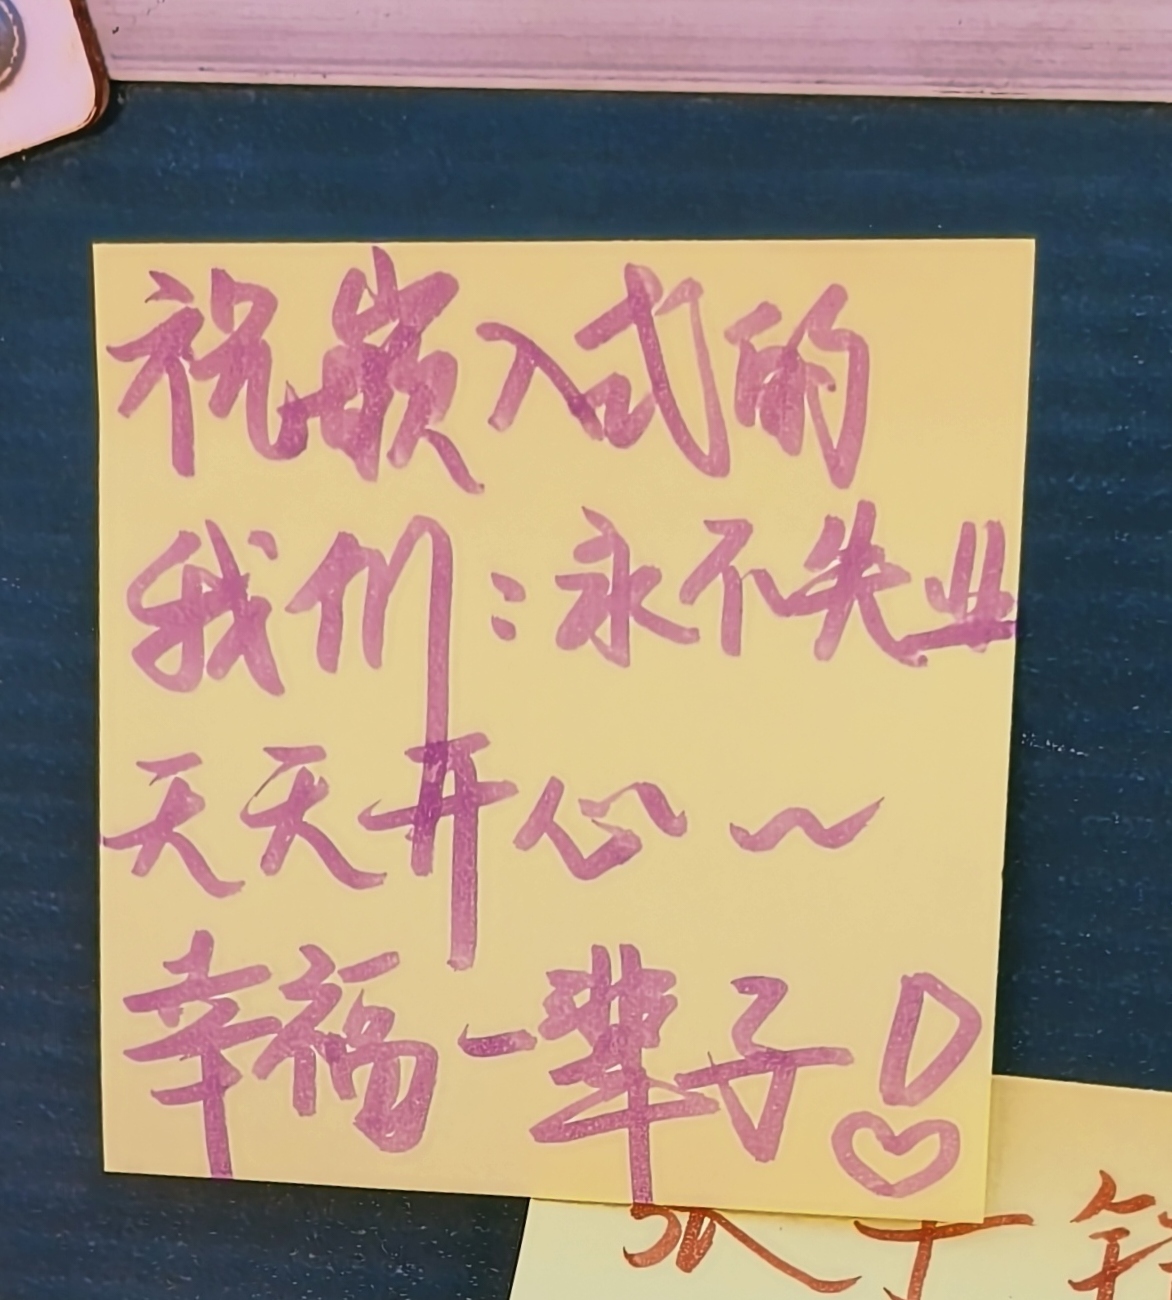 祝嵌入式的
我们：永不失业
天天开心～
幸福一辈子！